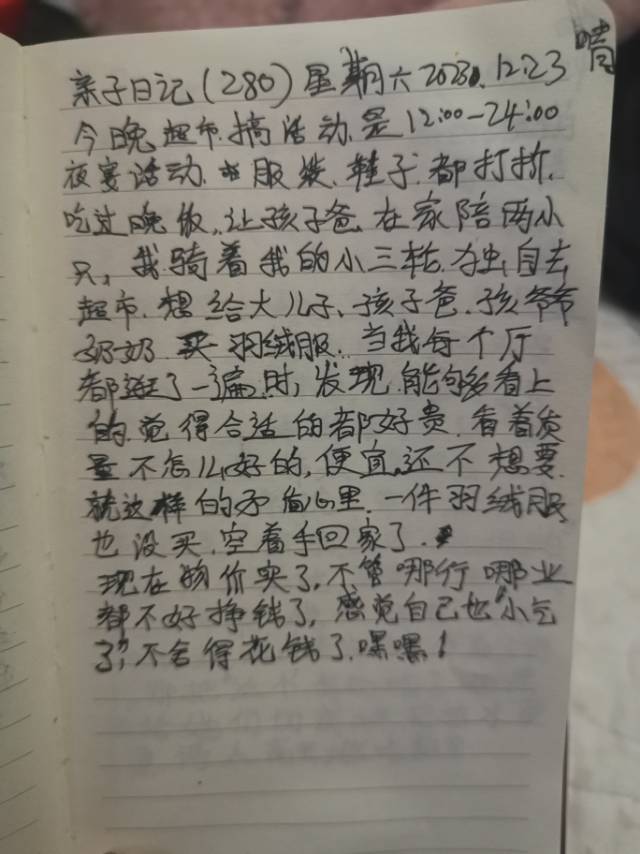 亲子日记(280)星期六2023.12.23 晴
今晚超市搞活动.是12:00-24:00
夜宴活动.服装、鞋子.都打折.
吃过晚饭..让孩子爸.在家陪两小
只,我骑着我的小三轮.独自去
超市.想给大儿子、孩子爸.孩爷爷
奶奶买羽绒服.当我每个厅
都逛了一遍时,发现能够看上
的.觉得合适的都好贵.看着质
量不怎么好的,便宜.还不想要.
就这样的矛盾心里.一件羽绒服
也没买.空着手回家了.
现在物价实了,不管哪行哪业
都不好挣钱了,感觉自己也“小气
了”,不舍得花钱了.嘿嘿!